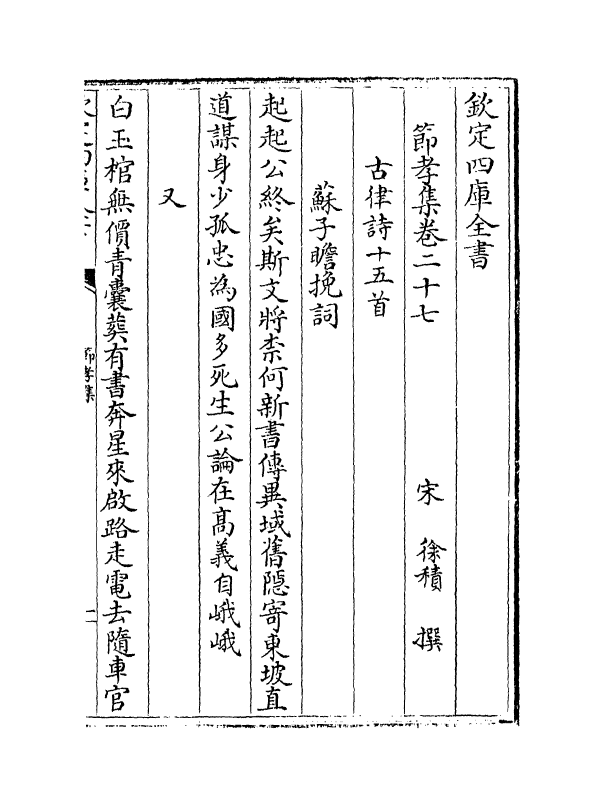 欽定四庫全書
節孝集卷二十七
宋 徐積 撰
古律詩十五首
蘇子瞻挽詞
起起公終矣斯文將柰何新書傳異域舊隠寄東坡直
道謀身少孤忠為國多死生公論在髙義自峨峨
又
白玉棺無價青囊葬有書奔星來啟路走電去隨車官
節孝集